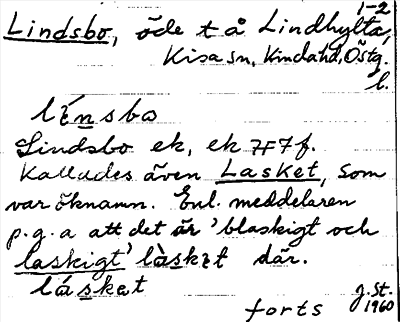 1-2
Lindsbo, öde t å Lindhylta,
Kisa sn, Kinda hd, Östg.
l.
lénsbo
Lindsbo ek, ek 7F7f.
Kallades även Lasket, som
var öknamn. Enl. meddelaren
p.g.a att det är 'blaskigt och
laskigt' làskɛt där.
láskɛt
forts J.St. 1960